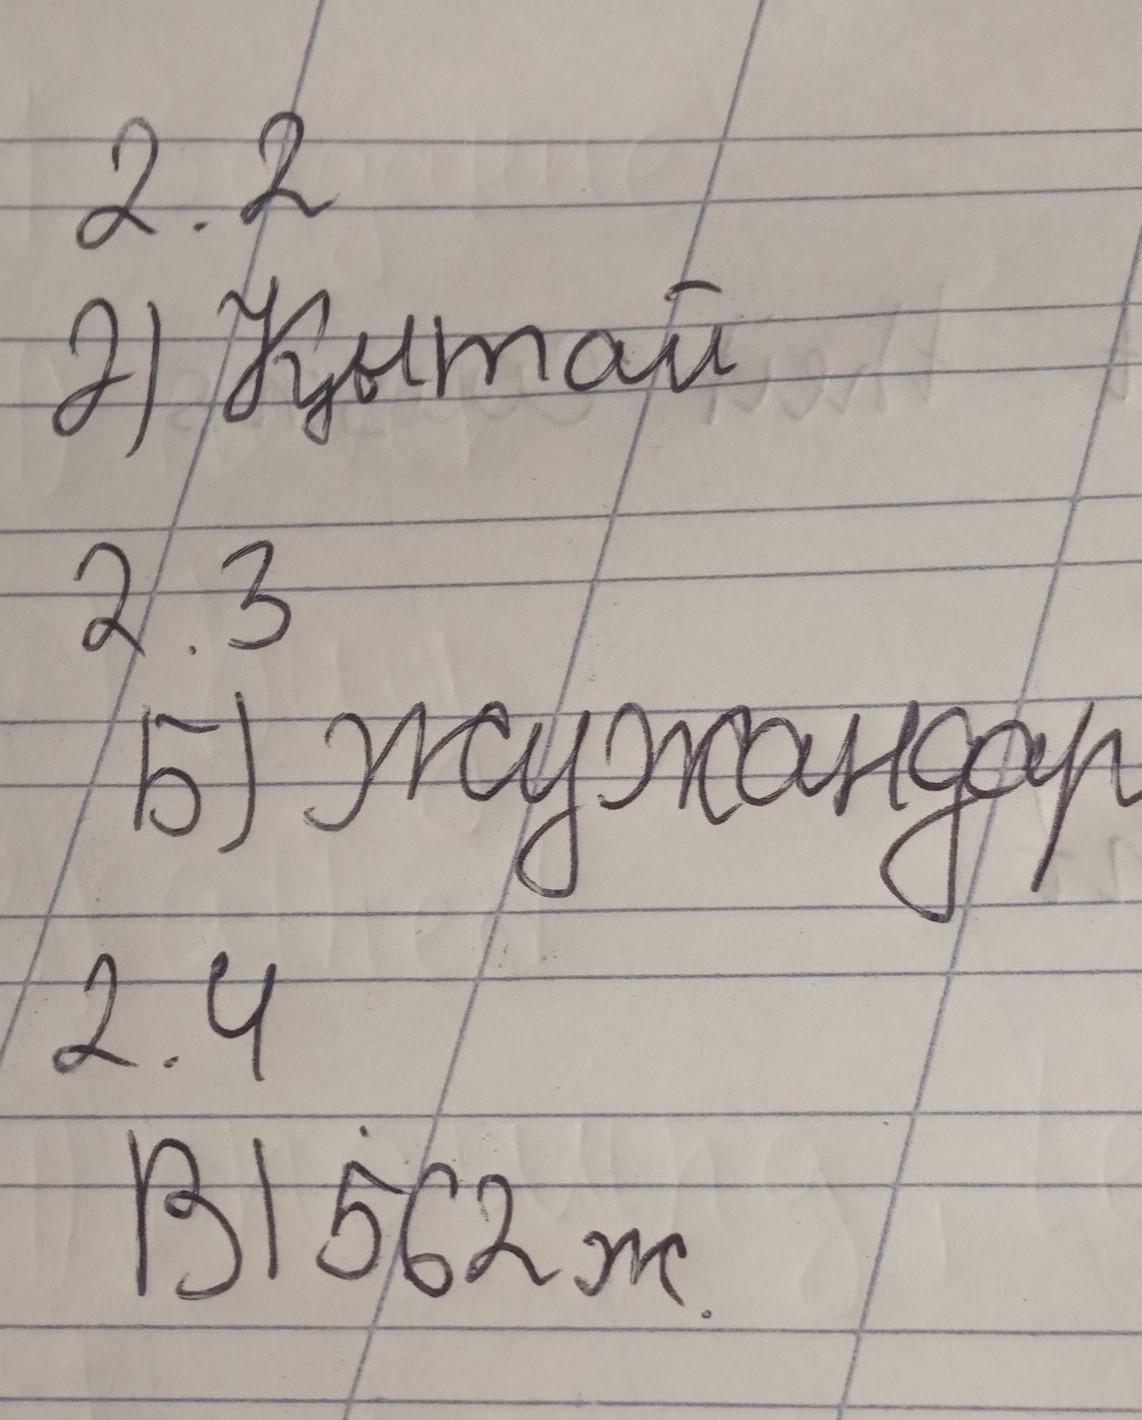 2.2
д) Қытай
2.3
Б) жужандар
2.4
В) 562 ж.